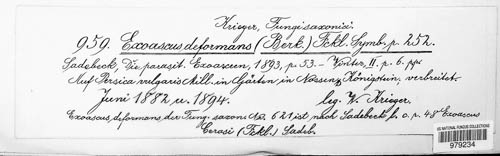 Krieger, Fungi saxonici.
959. Exoascus deformans (Berk.) Fckl. Symb. p. 252.
Sadebeck, Die parasit. Exoasceen, 1893, p. 53. – Winter, II. p. 6. pp
Auf Persica vulgaris Mill. in Gärten, in Nossen, Königstein, verbreitet.
Juni 1882 u. 1894. leg. W. Krieger.
Exoascus deformans der Fung. saxon. No. 621 ist nach Sadebeck l. c. p. 48 Exoascus
Cerasi (Fckl.) Sadeb.
US NATIONAL FUNGUS COLLECTIONS
979234